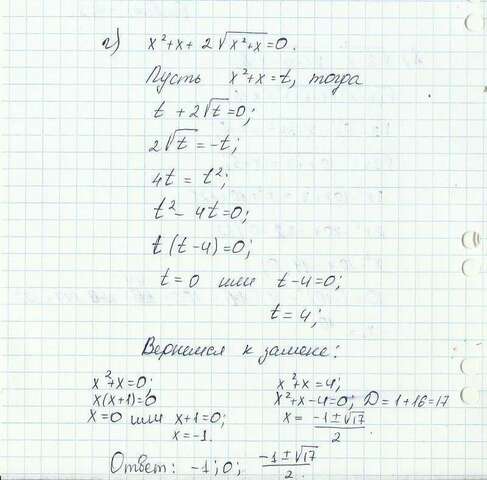 г) x²+x+2√(x²+x)=0.
Пусть x²+x=t, тогда
t+2√t=0;
2√t=-t;
4t=t²;
t²-4t=0;
t(t-4)=0;
t=0 или t-4=0;
t=4;
Вернемся к замене:
x²+x=0; x²+x=4;
x(x+1)=0 x²+x-4=0; D=1+16=17
x=0 или x+1=0; x= (-1±√17)/2
x=-1.
Ответ: -1; 0; (-1±√17)/2.